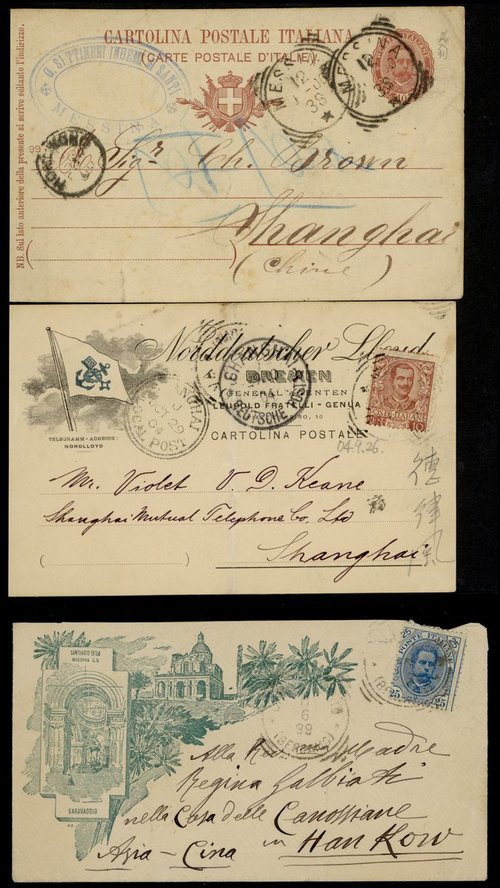 CARTOLINA POSTALE ITALIANA
(CARTE POSTALE D'ITALIE)
NB. Sul lato anteriore della presente si scrive soltanto l'indirizzo.
MESSINA
MESSINA
12
MESSINA
12
HONG KONG
Sigr. Ch. Brown
Shanghai
(Chine)
Norddeutscher Lloyd
BREMEN
GENERAL-AGENTEN
LEOPOLD FRATELLI - GENUA
CARTOLINA POSTALE
TELEGRAMM-ADRESSE:
NORDLLOYD
SHANGHAI
LOCAL POST
DEUTSCHE POST
POSTE ITALIANE
10
04.9.26.
德律风
Mr. Violet V. D. Keane
Shanghai Mutual Telephone Co. Ltd
Shanghai
SANTUARIO DELLA
MADONNA
CARAVAGGIO
25 POSTE ITALIANE 25
25 25
6
99
(BERGAMO)
Alla Rev. Madre
Regina Galbiati
nella Casa delle Canossiane
in Han Kow
Asia - Cina